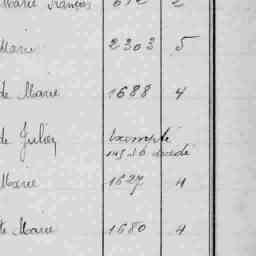 Marie François 672 2
Marie 2303 5
de Marie 1688 4
de Julien exempté
décédé
Marie 1627 4
te Marie 1680 4